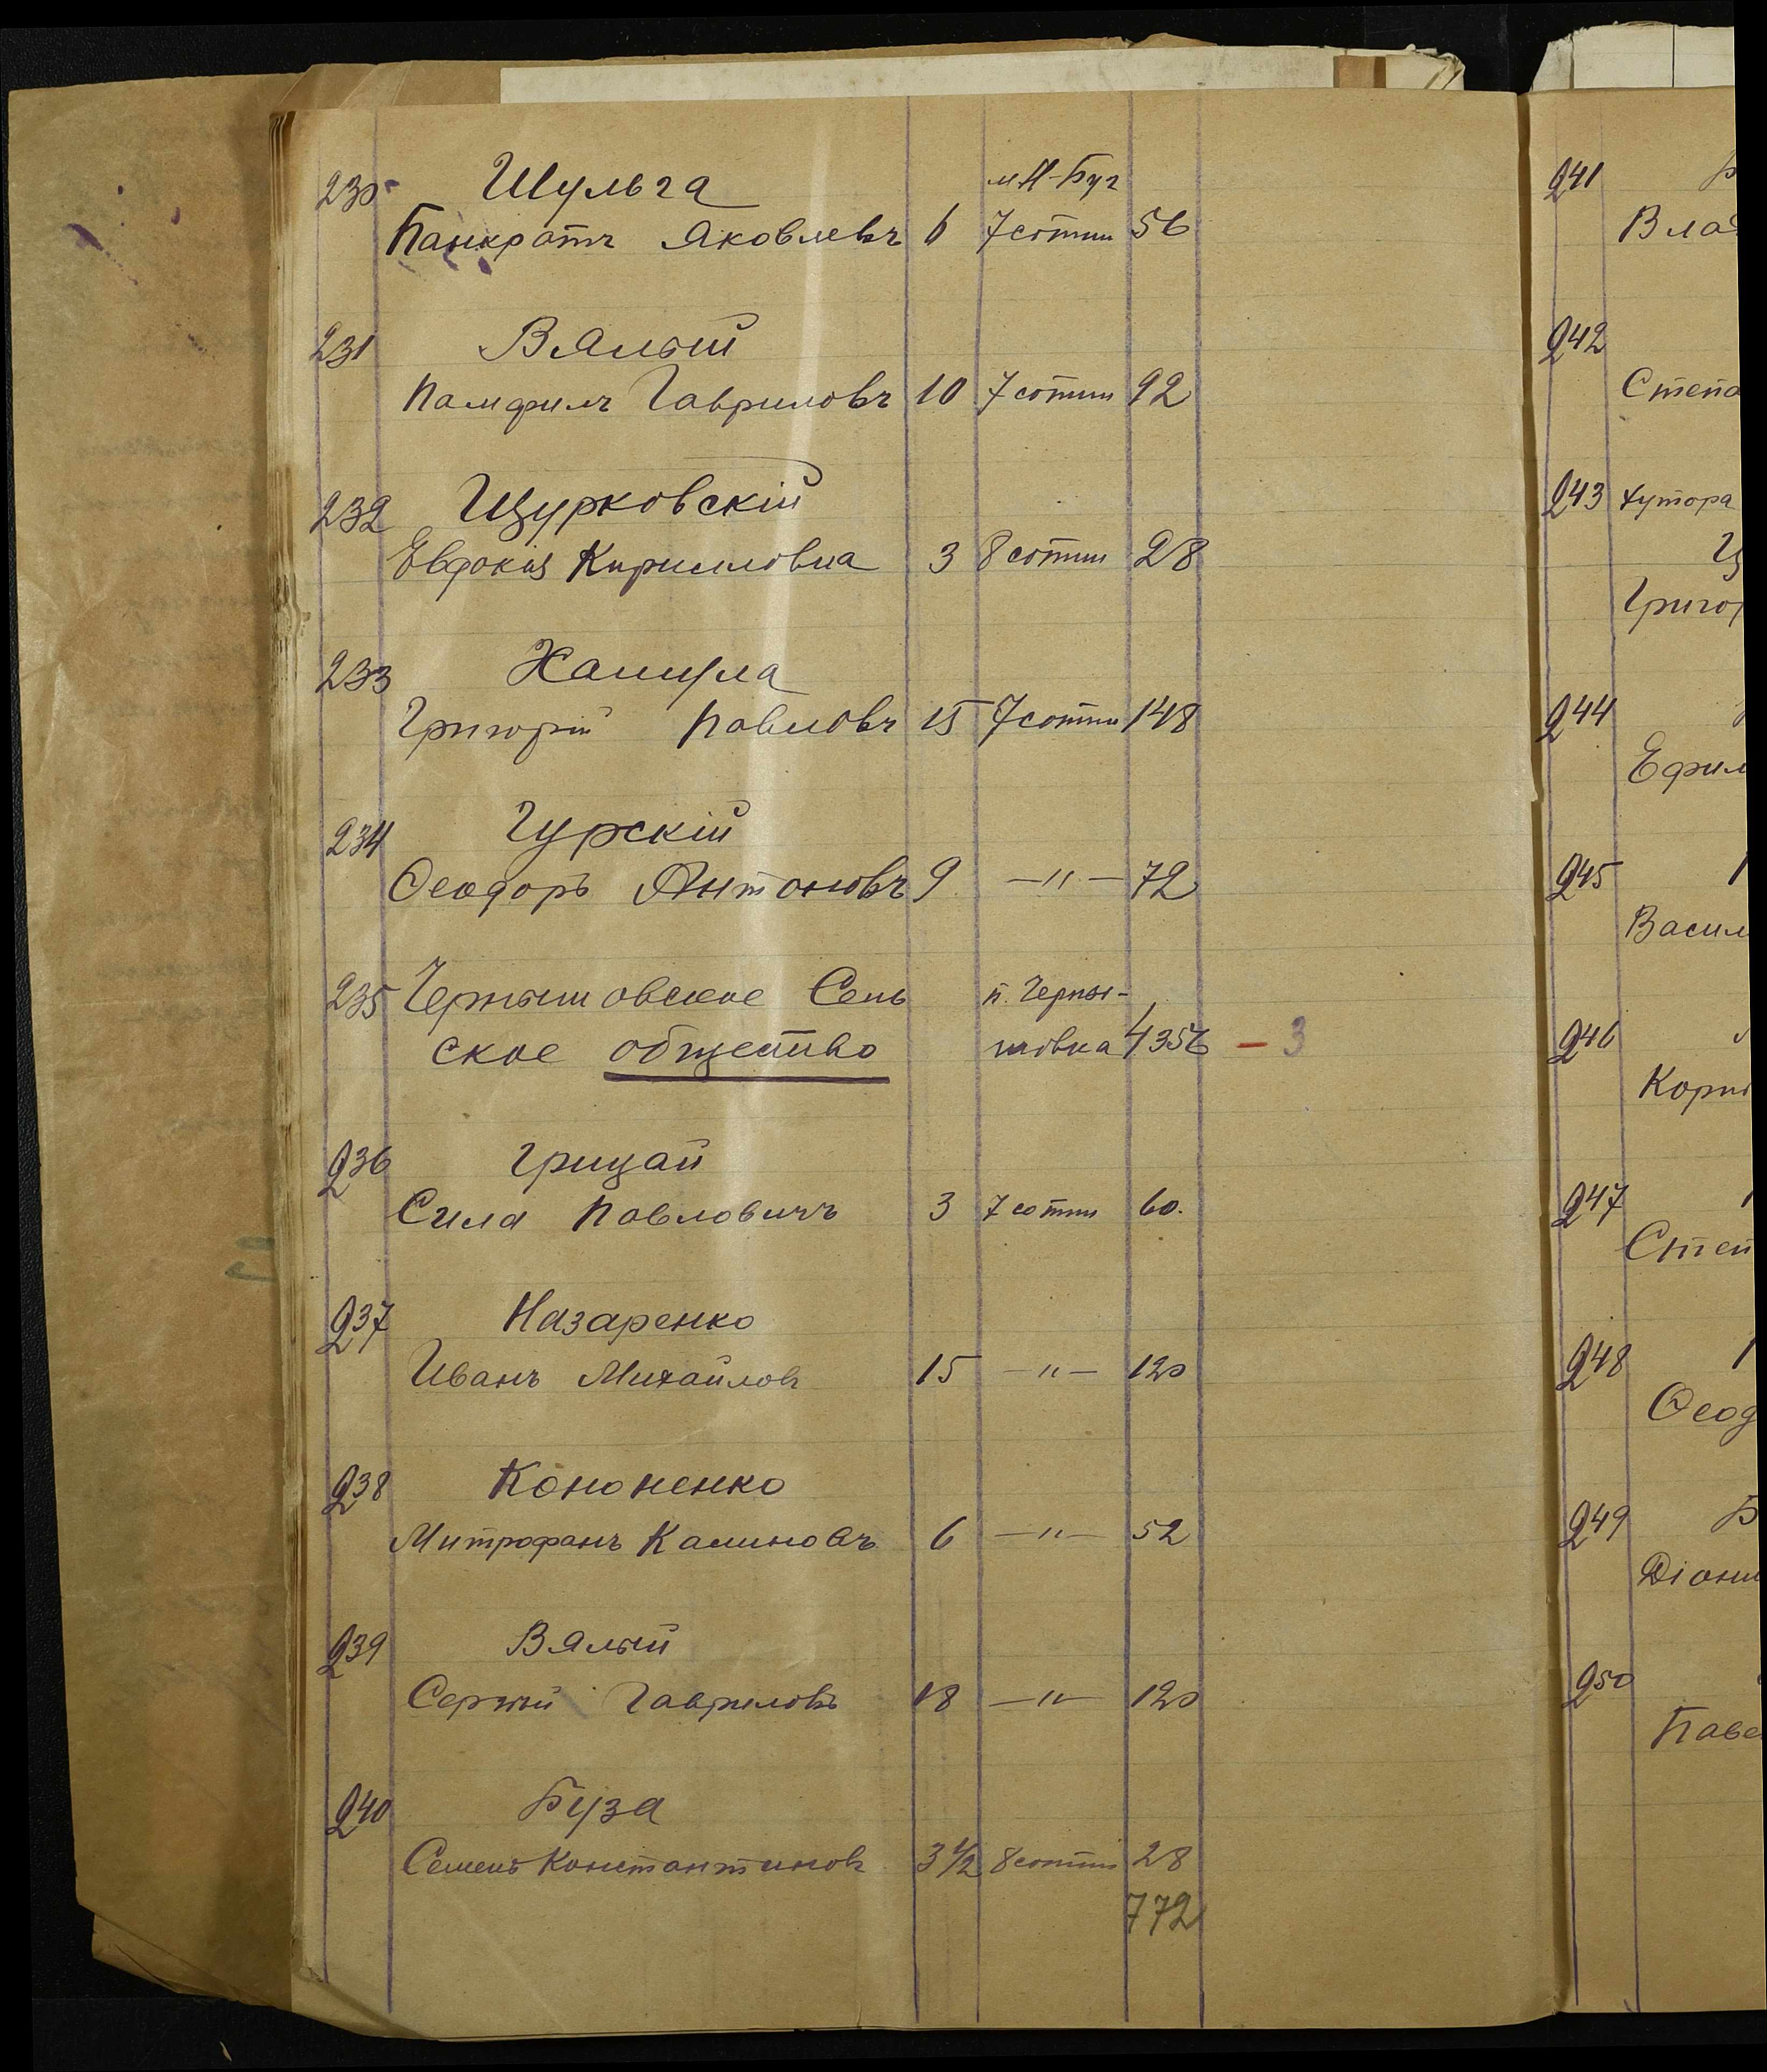 230 Шульга м. Н-Буг
Панкратъ Яковлевъ 6 7 сотни 56
231 Вялый
Памфилъ Гавриловъ 10 7 сотни 92
232 Щурковскій
Евдокія Кирилловна 3 8 сотни 28
233 Хамула
Григорій Павловъ 15 7 сотни 148
234 Гурскій
Ѳеодоръ Антоновъ 9 —〃— 72
235 Чернышовское Сель п. Черны-
ское общество шовка 4356 — 3
236 Грицай
Сила Павловичъ 3 7 сотни 60.
237 Назаренко
Иванъ Михайловъ 15 —〃— 120
238 Кононенко
Митрофанъ Калиновъ 6 —〃— 52
239 Вялый
Сергѣй Гавриловъ 18 —〃— 120
240 Буза
Семенъ Константиновъ 3 1/2 8 сотни 28
772
241 Б
Влад
242
Степа
243 хутора
Щ
Григор
244
Ефим
245
Васил
246
Корни
247
Степ
248
Ѳеод
249 Б
Діони
250
Паве